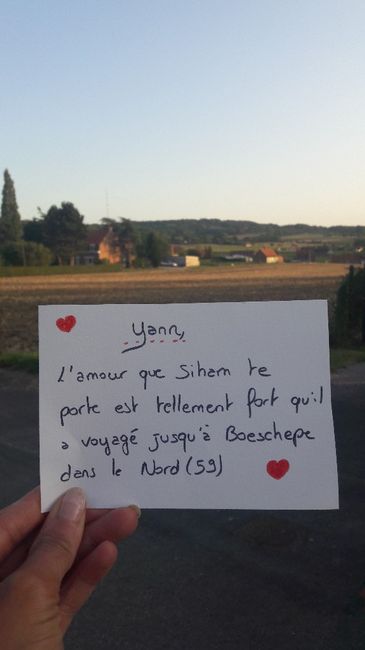 Yann,
L'amour que Siham te
porte est tellement fort qu'il
a voyagé jusqu'à Boeschepe
dans le Nord (59)